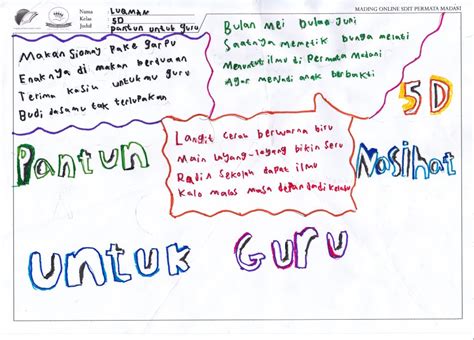 MADING ONLINE SDIT PERMATA MADANI
Nama LUQMAN
Kelas 5D
Judul pantun untuk guru
Makan Siomay Pake Garpu
Enaknya di makan berduaan
Terima kasih untukmu guru
Budi Jasamu tak terlupakan
Bulan Mei Bulan Juni
Saatnya Memetik bunga melati
Menuntut ilmu di Permata Madani
Agar menjadi anak berbakti
5D
Langit Cerah berwarna biru
Main layang-layang bikin seru
Rajin Sekolah dapat ilmu
Kalo malas masa depan Jadi kelabu
Pantun
Nasihat
untuk Guru